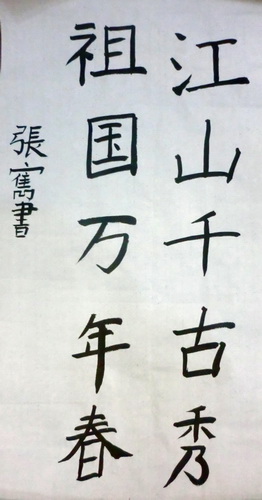 江山千古秀
祖国万年春
張寯書